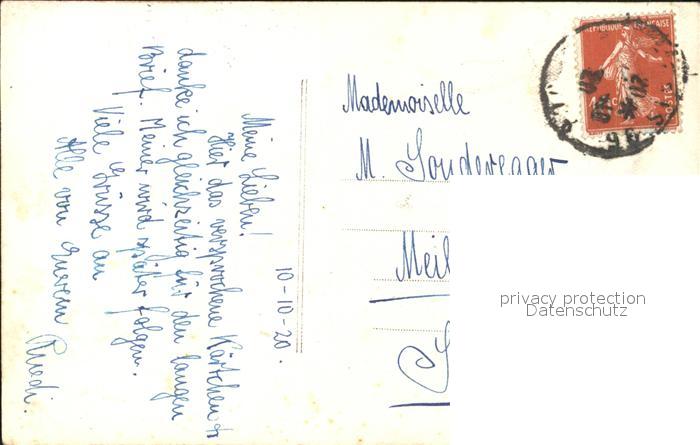 10-10-20.
Meine Lieben!
Hier das versprochene Kärtchen &
danke ich gleichzeitig für den langen
Brief. Meiner wird später folgen.
Viele Grüsse an
Alle von Euerem
Ruedi.
Mademoiselle
M. Sonderegger
Meil
REPUBLIQUE FRANÇAISE
privacy protection
Datenschutz